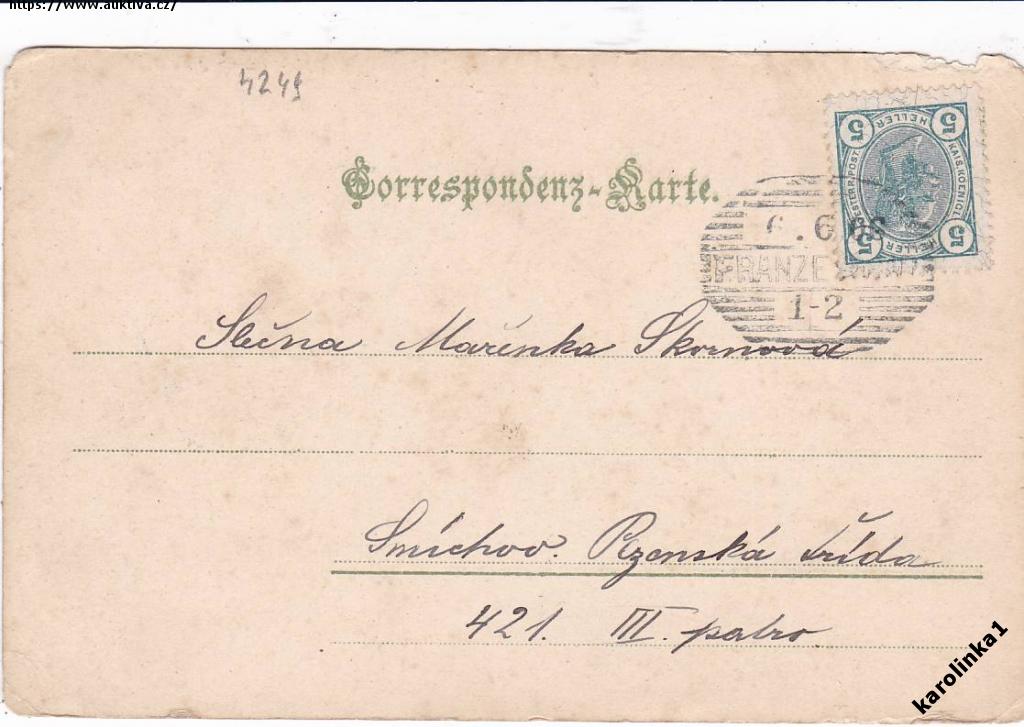 https://www.auktiva.cz/
4249
Correspondenz-Karte.
5 HELLER 5
KAIS. KOENIGL.
OESTERR. POST.
5 HELLER 5
6.6
FRANZE
1-2
Slečna Mařenka Skornová
Smíchov. Plzenská třída
421. III. patro
karolinka1